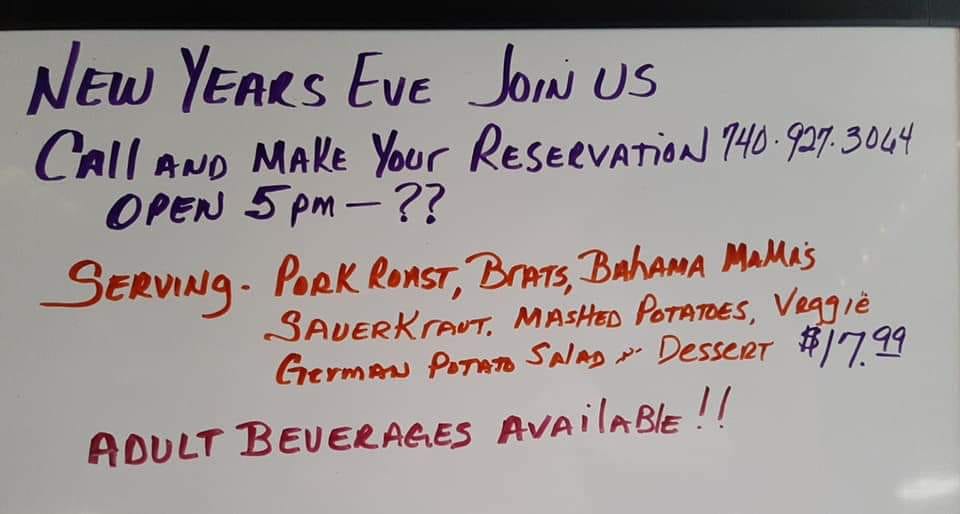 NEW YEARS EVE JOIN US
CAll AND MAKE YOUr RESERVATION 740·927·3064
OPEN 5 pm — ??
SERVING - PORK ROAST, BrATS, BAhAMA MAMA's
SAUERKrAUT. MASHED POTATOES, Veggië
GerMAN POTATO SALAD n DESSERT $17.99
ADULT BEVERAGES AVAilABlE!!